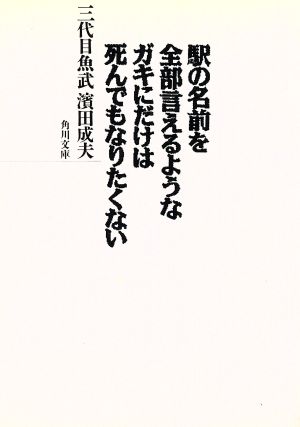 駅の名前を
全部言えるような
ガキにだけは
死んでもなりたくない
三代目魚武 濱田成夫
角川文庫